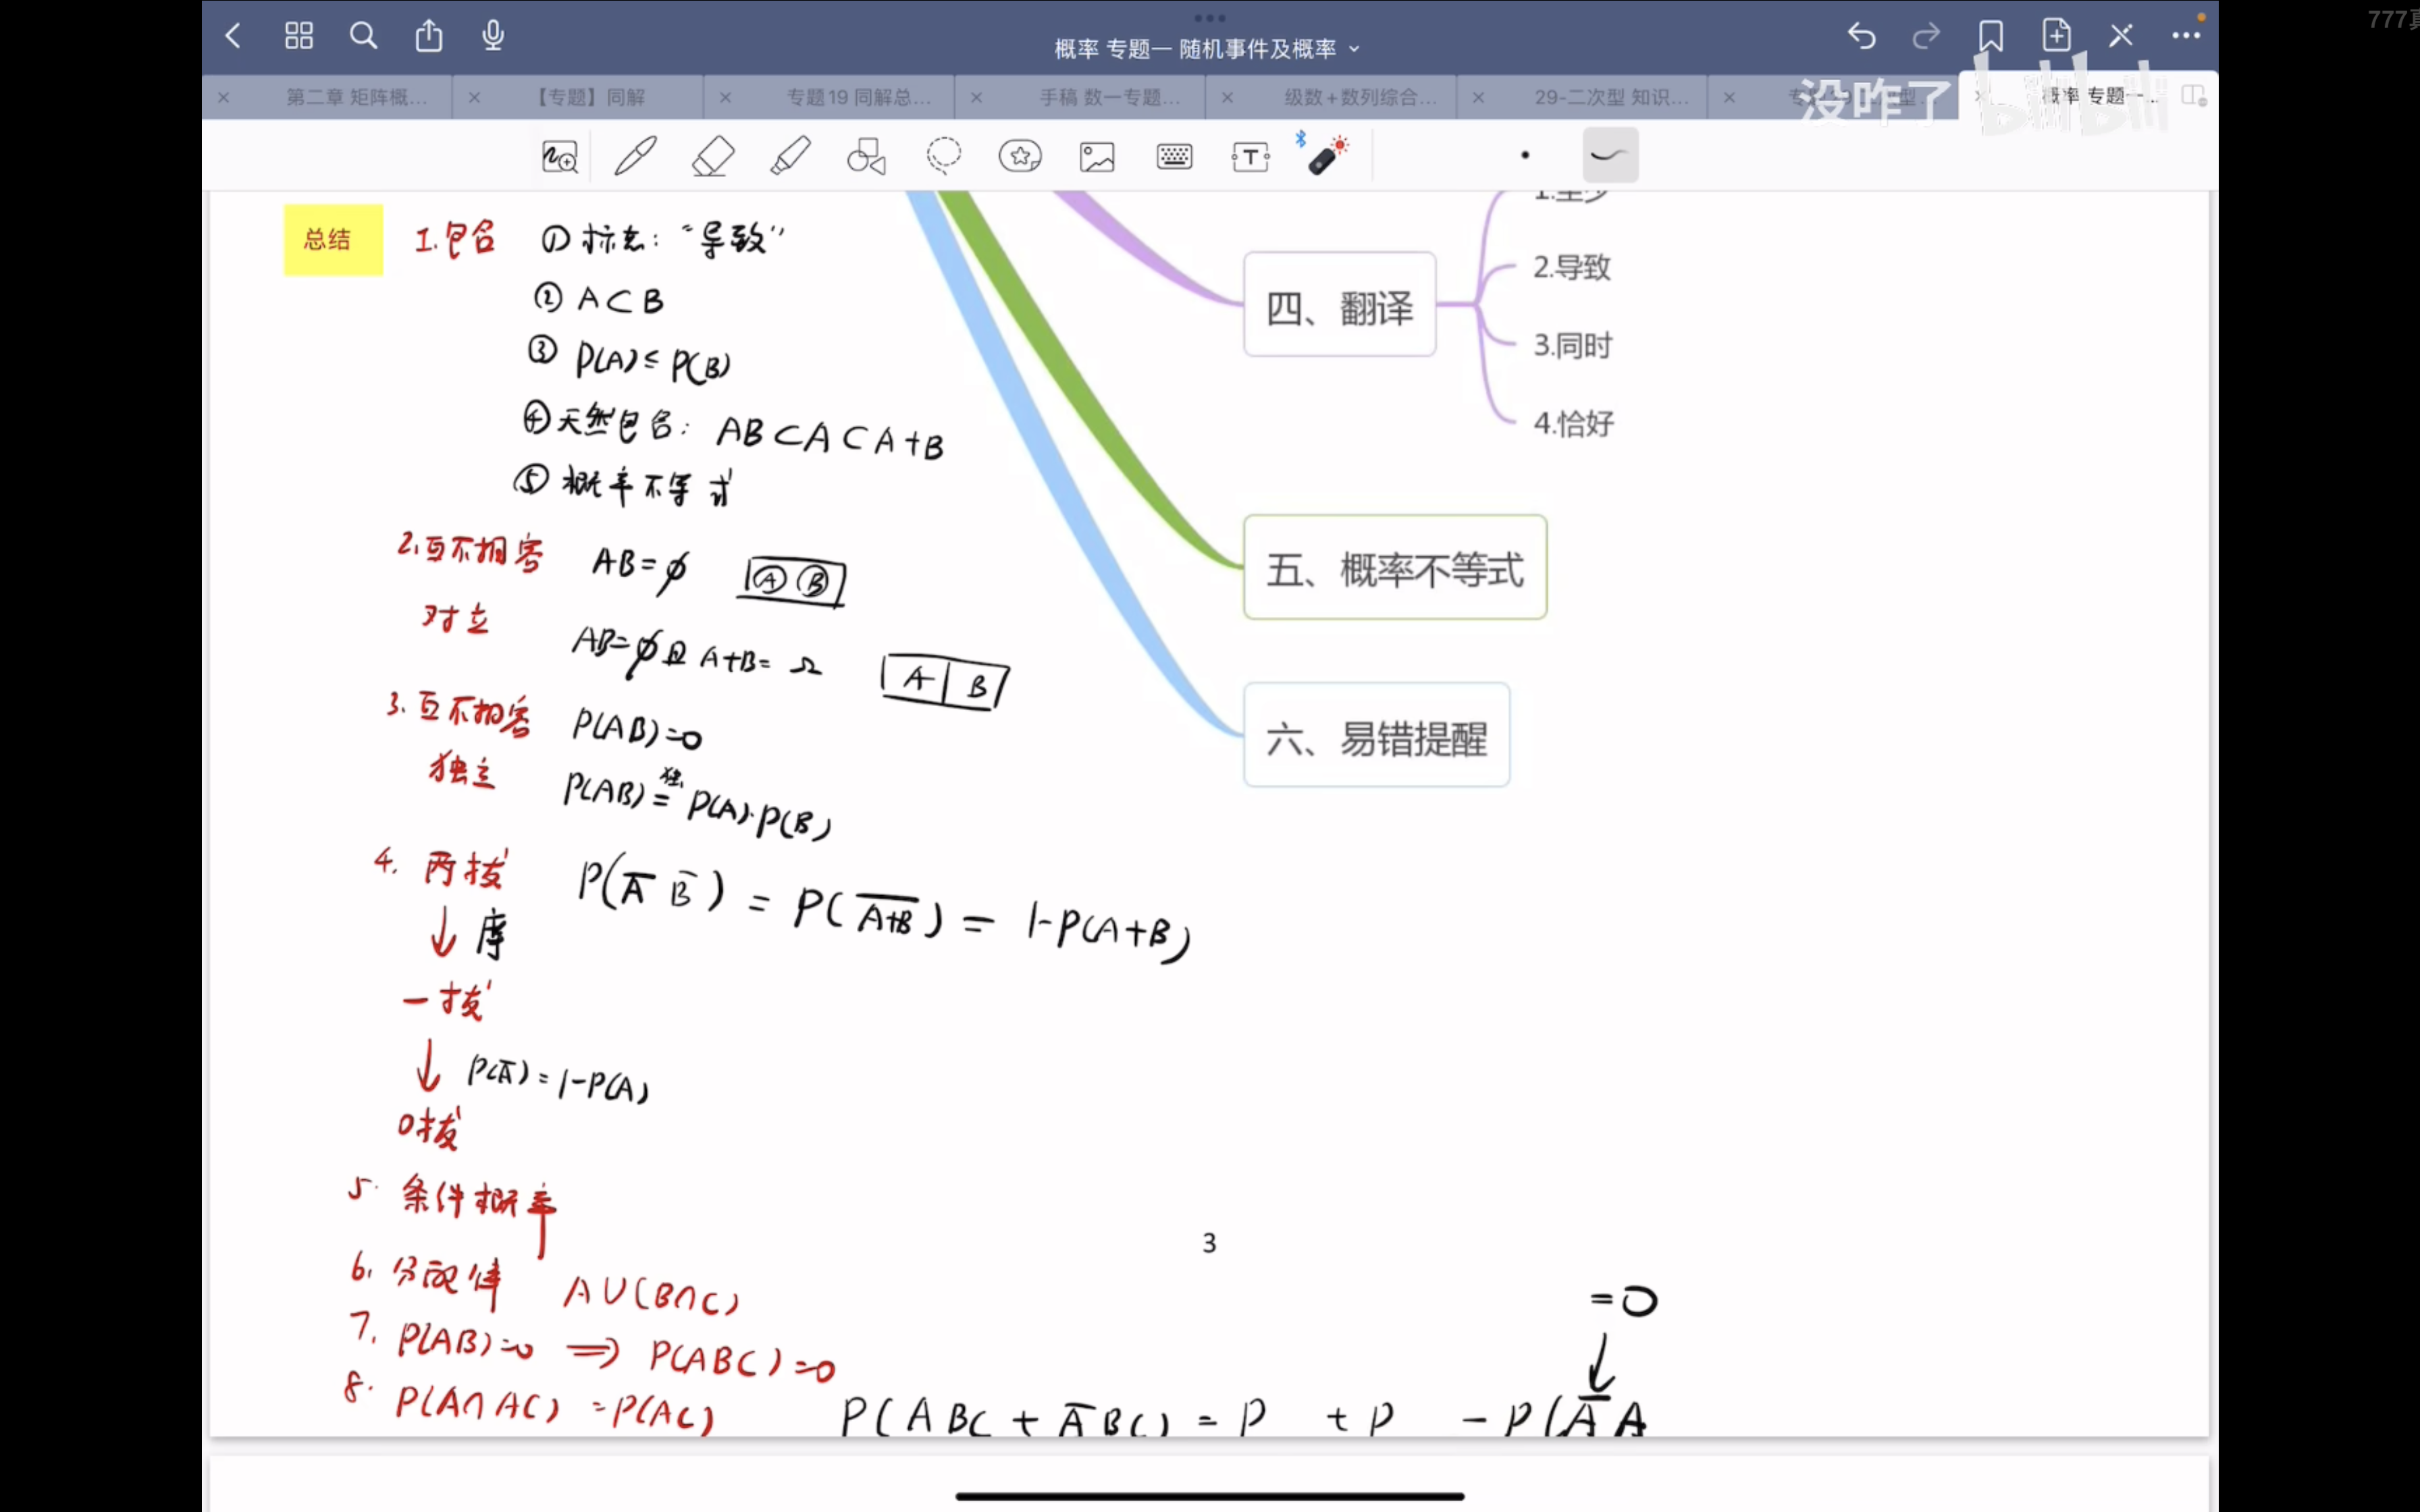 777
概率 专题一 随机事件及概率
第二章 矩阵概...
【专题】同解
专题19 同解总...
手稿 数一专题...
级数+数列综合...
29-二次型 知识...
概率 专题一...
没咋了
bilibili
总结
1.包含 ① 标志:“导致”
② A⊂B
③ P(A)≤P(B)
④天然包含: AB⊂A⊂A+B
⑤ 概率不等式
2.互不相容 AB=∅ A B
对立 AB=∅且A+B=Ω A B
3.互不相容 P(AB)=0
独立 P(AB)=独 P(A)·P(B)
4. 两拔 P(A̅ B̅) = P(A̅+̅B̅) = 1-P(A+B)
↓ 库
一拔
↓ P(A̅)=1-P(A)
0拔
5. 条件概率
6. 分配律 A∪(B∩C)
7. P(AB)=0 ⇒ P(ABC)=0
8. P(A∩AC)=P(AC)
=0
↓
P(ABC+A̅BC)=P +P -P(A̅A
1.至少
四、翻译
2.导致
3.同时
4.恰好
五、概率不等式
六、易错提醒
3